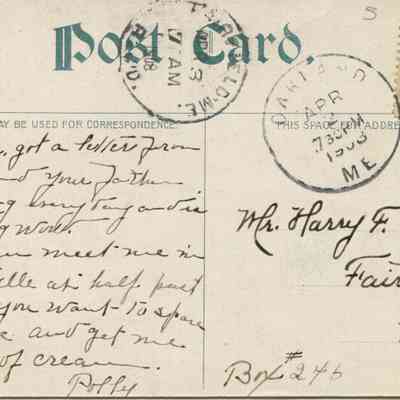 5
Post Card.
FAIRFIELD ME.
APR
3
7 AM
1908
REC'D.
OAKLAND
APR
2
7 30 PM
1908
ME
MAY BE USED FOR CORRESPONDENCE.
THIS SPACE FOR ADDRESS
got a letter from
your father
everything and is
meet me in
at half past
you want to spare
and get me
of cream.
Polly
Mr. Harry F.
Fair
Box #246